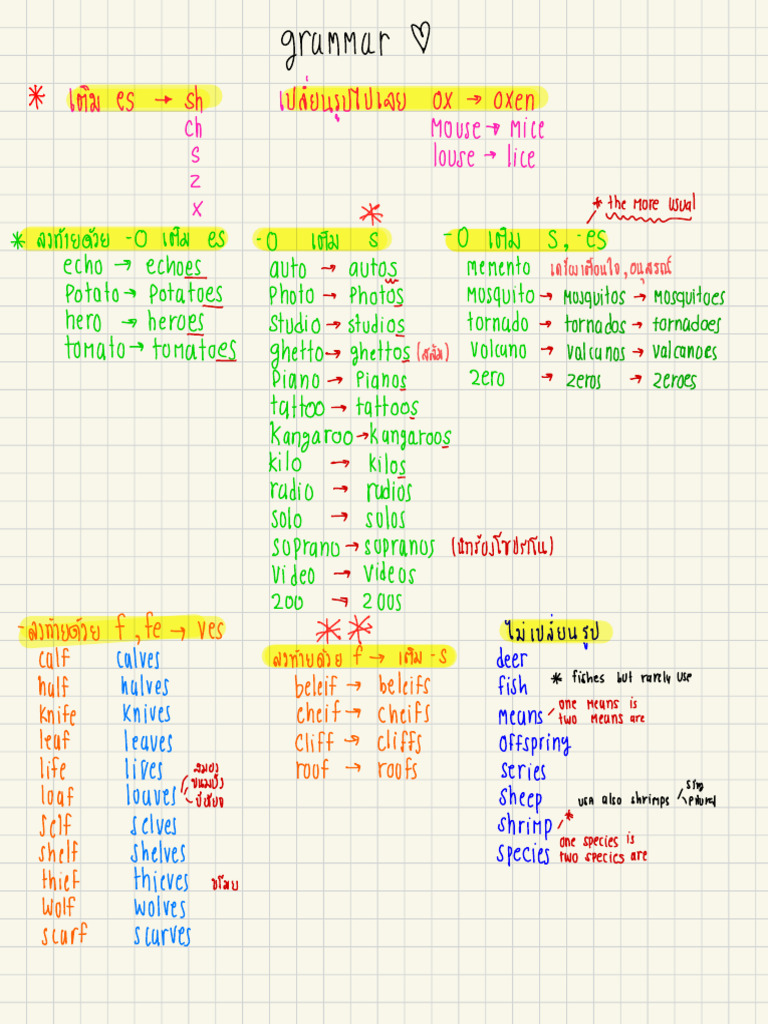 grammar ♡
* เติม es → sh
ch
s
z
x
เปลี่ยนรูปไปเลย ox → oxen
Mouse → Mice
louse → lice
* ลงท้ายด้วย -O เติม es
echo → echoes
Potato → Potatoes
hero → heroes
tomato → tomatoes
*
-O เติม s
auto → autos
Photo → Photos
studio → studios
ghetto → ghettos (สลัม)
Piano → Pianos
tattoo → tattoos
Kangaroo → Kangaroos
kilo → kilos
radio → radios
solo → solos
soprano → sopranos (นักร้องโซปราโน)
Video → Videos
zoo → zoos
* the more usual
-O เติม s, -es
memento เครื่องเตือนใจ, อนุสรณ์
Mosquito → Mosquitos → Mosquitoes
tornado → tornados → tornadoes
Volcano → Valcanos → valcanoes
zero → zeros → zeroes
-ลงท้ายด้วย f, fe → ves
calf calves
half halves
Knife Knives
leaf leaves
life lives
loaf louves ขนมปัง
self selves
shelf shelves
thief thieves ขโมย
Wolf wolves
scarf scarves
* *
ลงท้ายด้วย f → เติม -s
beleif → beleifs
cheif → cheifs
cliff → cliffs
roof → roofs
ไม่เปลี่ยนรูป
deer
fish * fishes but rarely use
Means one means is
two means are
Offspring
series
sheep
shrimp * USA also shrimps sing
plural
species one species is
two species are